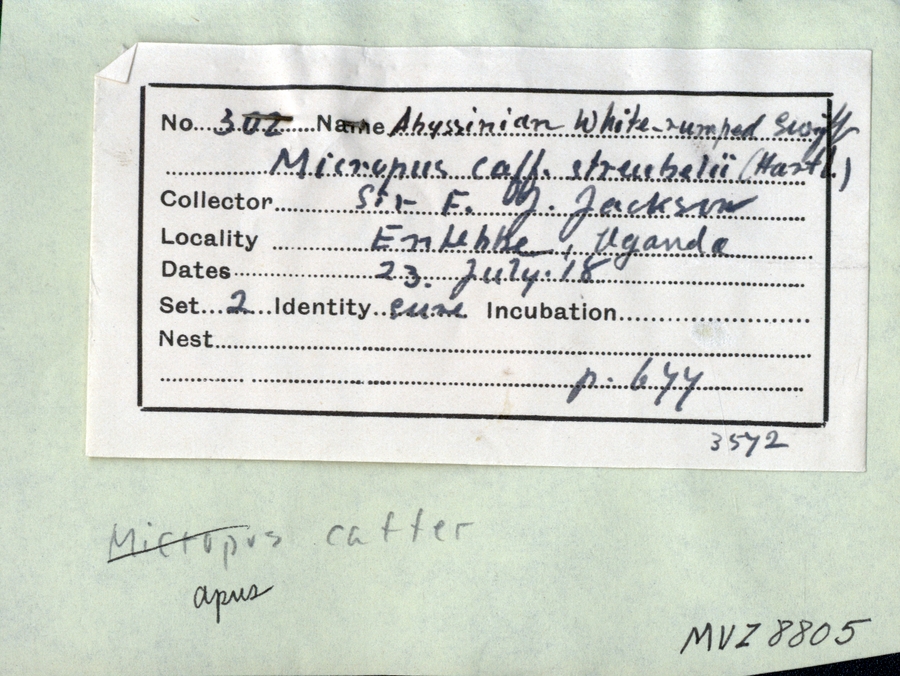 No...302...Name Abyssinian White-rumped Swift
Micropus caff. streubelii (Hartl.)
Collector Sir F. J. Jackson
Locality Entebbe, Uganda
Dates 23. July. 18
Set...2...Identity..sure Incubation
Nest
p. 644
3572
Micropus caffer
apus
MVZ 8805